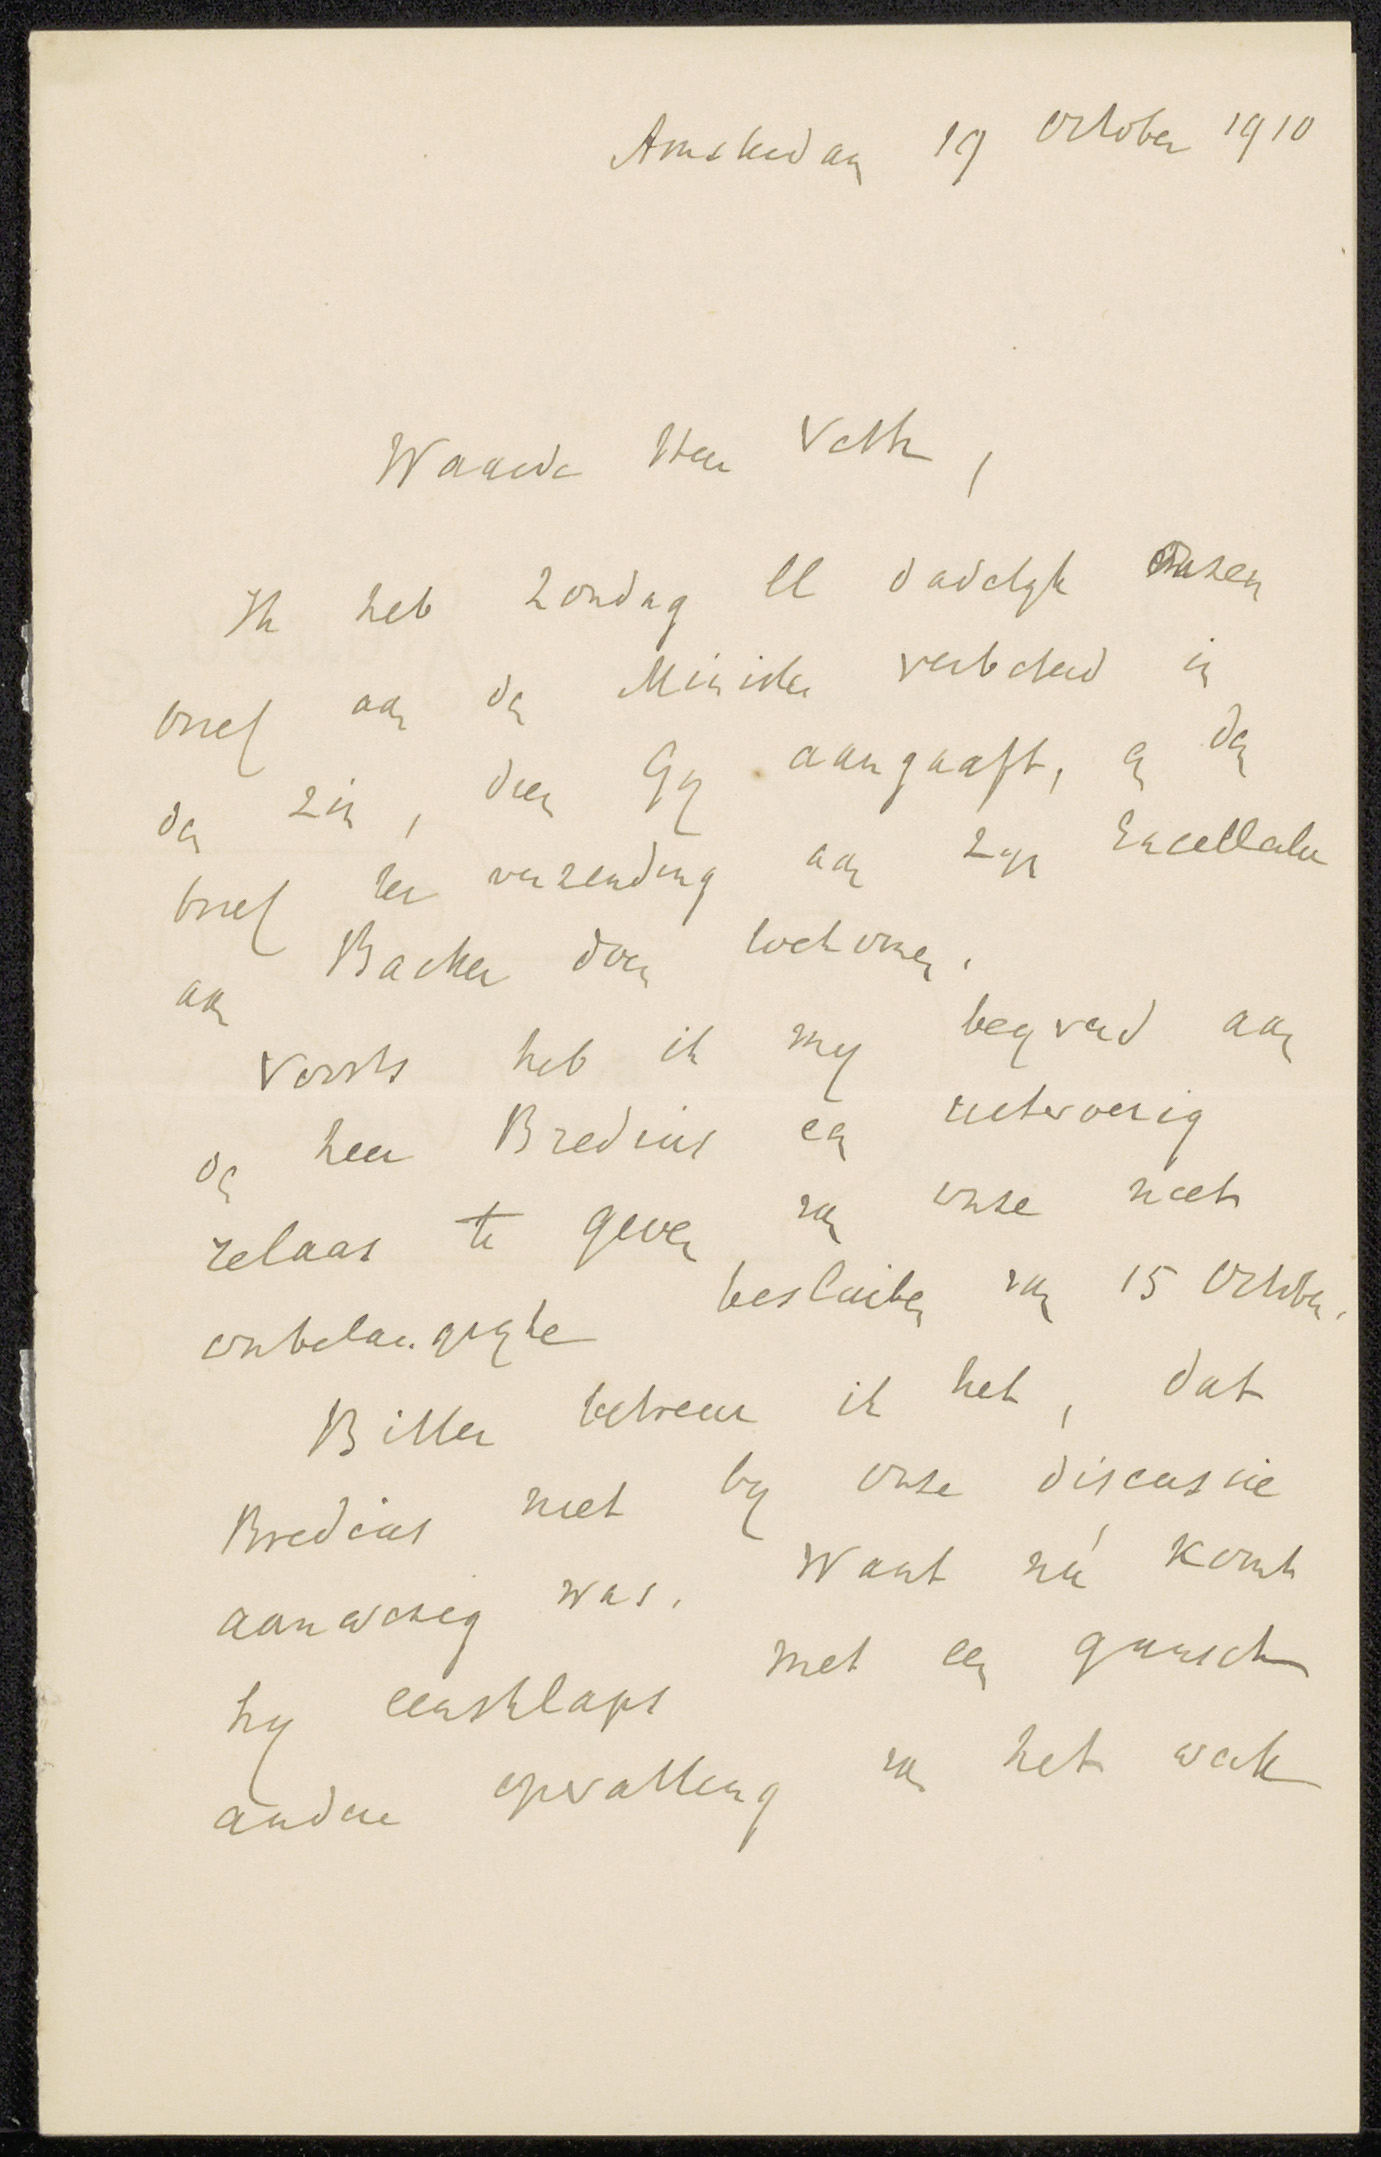 Amsterdam 19 October 1910
Waarde Heer Veth,
Ik heb Zondag ll dadelyk onzen
brief aan den Minister verbeterd in
den zin, dien Gy aangaaft, en den
brief ter verzending aan Zyn Excellentie
aan Backer doen toekomen.
Voorts heb ik my beyverd aan
den heer Bredius een uitvoerig
relaas te geven van onze niet
onbelangryke besluiten van 15 October.
Bitter betreur ik het, dat
Bredius niet by onze discussie
aanwezig was. Want nú komt
hy eensklaps met een gansch
andere opvatting van het werk